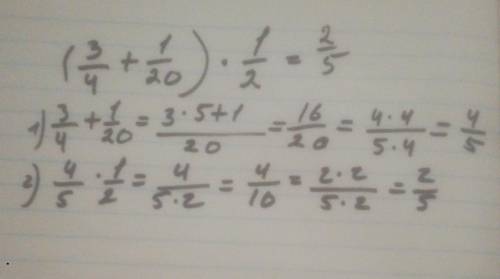 (3/4 + 1/20) · 1/2 = 2/5
1) 3/4 + 1/20 = 3·5+1/20 = 16/20 = 4·4/5·4 = 4/5
2) 4/5 · 1/2 = 4/5·2 = 4/10 = 2·2/5·2 = 2/5